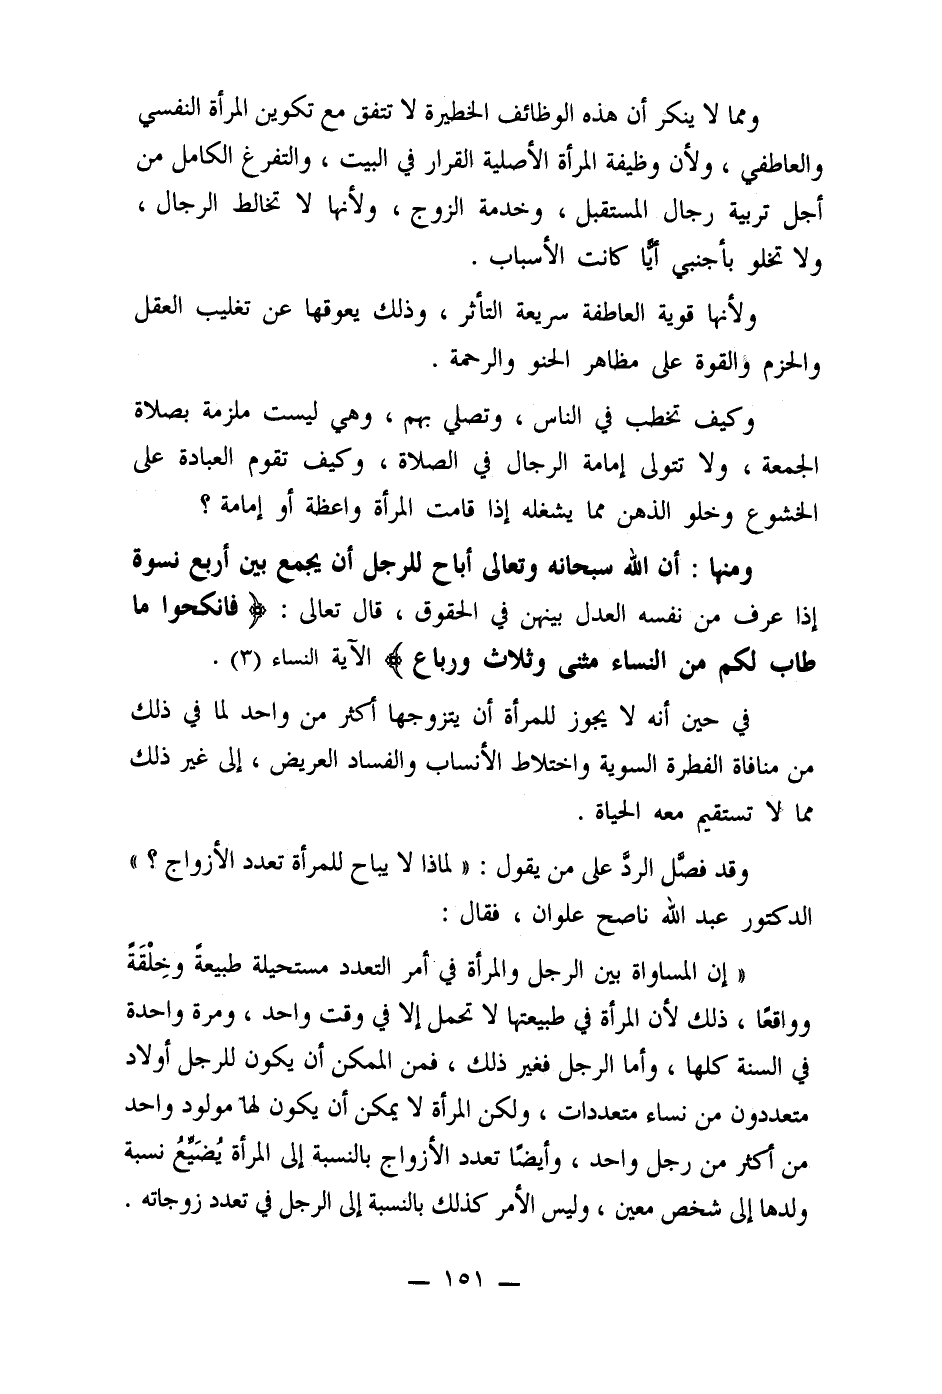 ومما لا ينكر أن هذه الوظائف الخطيرة لا تتفق مع تكوين المرأة النفسي
والعاطفي ، ولأن وظيفة المرأة الأصلية القرار في البيت ، والتفرغ الكامل من
أجل تربية رجال المستقبل ، وخدمة الزوج ، ولأنها لا تخالط الرجال ،
ولا تخلو بأجنبي أيًّا كانت الأسباب .
ولأنها قوية العاطفة سريعة التأثر ، وذلك يعوقها عن تغليب العقل
والحزم والقوة على مظاهر الحنو والرحمة .
وكيف تخطب في الناس ، وتصلي بهم ، وهي ليست ملزمة بصلاة
الجمعة ، ولا تتولى إمامة الرجال في الصلاة ، وكيف تقوم العبادة على
الخشوع وخلو الذهن مما يشغله إذا قامت المرأة واعظة أو إمامة ؟
ومنها : أن الله سبحانه وتعالى أباح للرجل أن يجمع بين أربع نسوة
إذا عرف من نفسه العدل بينهن في الحقوق ، قال تعالى : ﴿ فانكحوا ما
طاب لكم من النساء مثنى وثلاث ورباع ﴾ الآية النساء (٣) .
في حين أنه لا يجوز للمرأة أن يتزوجها أكثر من واحد لما في ذلك
من منافاة الفطرة السوية واختلاط الأنساب والفساد العريض ، إلى غير ذلك
مما لا تستقيم معه الحياة .
وقد فصَّل الردَّ على من يقول : « لماذا لا يباح للمرأة تعدد الأزواج ؟ »
الدكتور عبد الله ناصح علوان ، فقال :
« إن المساواة بين الرجل والمرأة في أمر التعدد مستحيلة طبيعةً وخِلْقَةً
وواقعًا ، ذلك لأن المرأة في طبيعتها لا تحمل إلا في وقت واحد ، ومرة واحدة
في السنة كلها ، وأما الرجل فغير ذلك ، فمن الممكن أن يكون للرجل أولاد
متعددون من نساء متعددات ، ولكن المرأة لا يمكن أن يكون لها مولود واحد
من أكثر من رجل واحد ، وأيضًا تعدد الأزواج بالنسبة إلى المرأة يُضَيِّعُ نسبة
ولدها إلى شخص معين ، وليس الأمر كذلك بالنسبة إلى الرجل في تعدد زوجاته .
— ١٥١ —